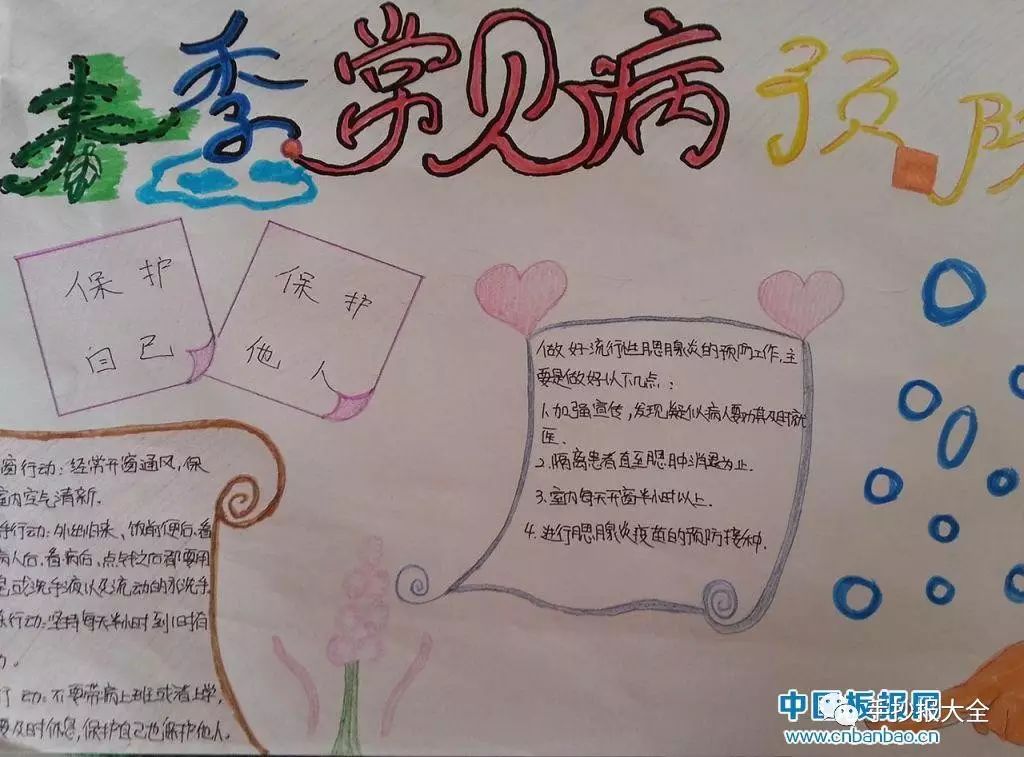 春季常见病预防
保护
自己
保护
他人
做好流行性腮腺炎的预防工作,主
要是做好以下几点:
1.加强宣传,发现疑似病人要劝其及时就
医.
2.隔离患者直至腮肿消退为止.
3.室内每天开窗半小时以上.
4.进行腮腺炎疫苗的预防接种.
窗行动:经常开窗通风,保
室内空气清新.
手行动:外出归来、饭前便后、看
病人后、看病后、点钱之后都要用
皂或洗手液以及流动的水洗手.
行动:坚持每天半小时到1小时有
动。
行动:不要带病上班或者上学,
要及时休息,保护自己也保护他人.
中国板报网
手抄报大全
www.cnbanbao.cn